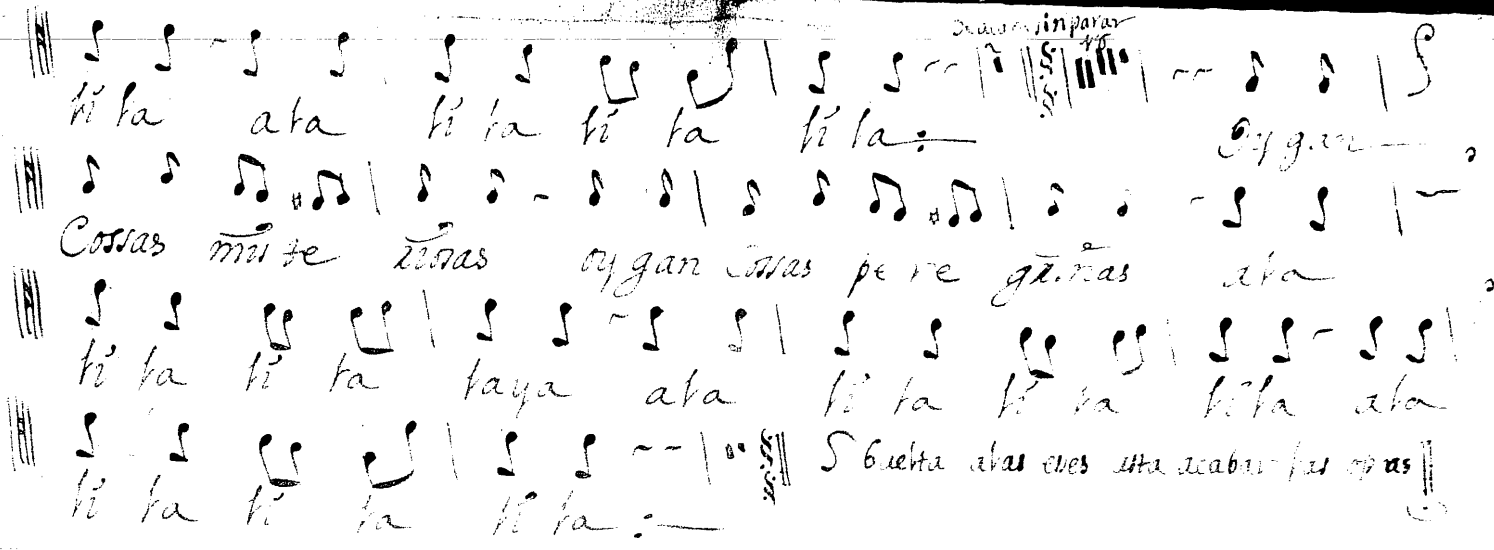 sin parar
ti ta ata ti ta ti ta ti ta Oygan
Cossas miste riosas oygan Cossas pe re gri.nas ata
ti ta ti ta taya ata ti ta ti ta ti ta ata
ti ta ti ta ti ta buelta alas eses asta acabar las opas